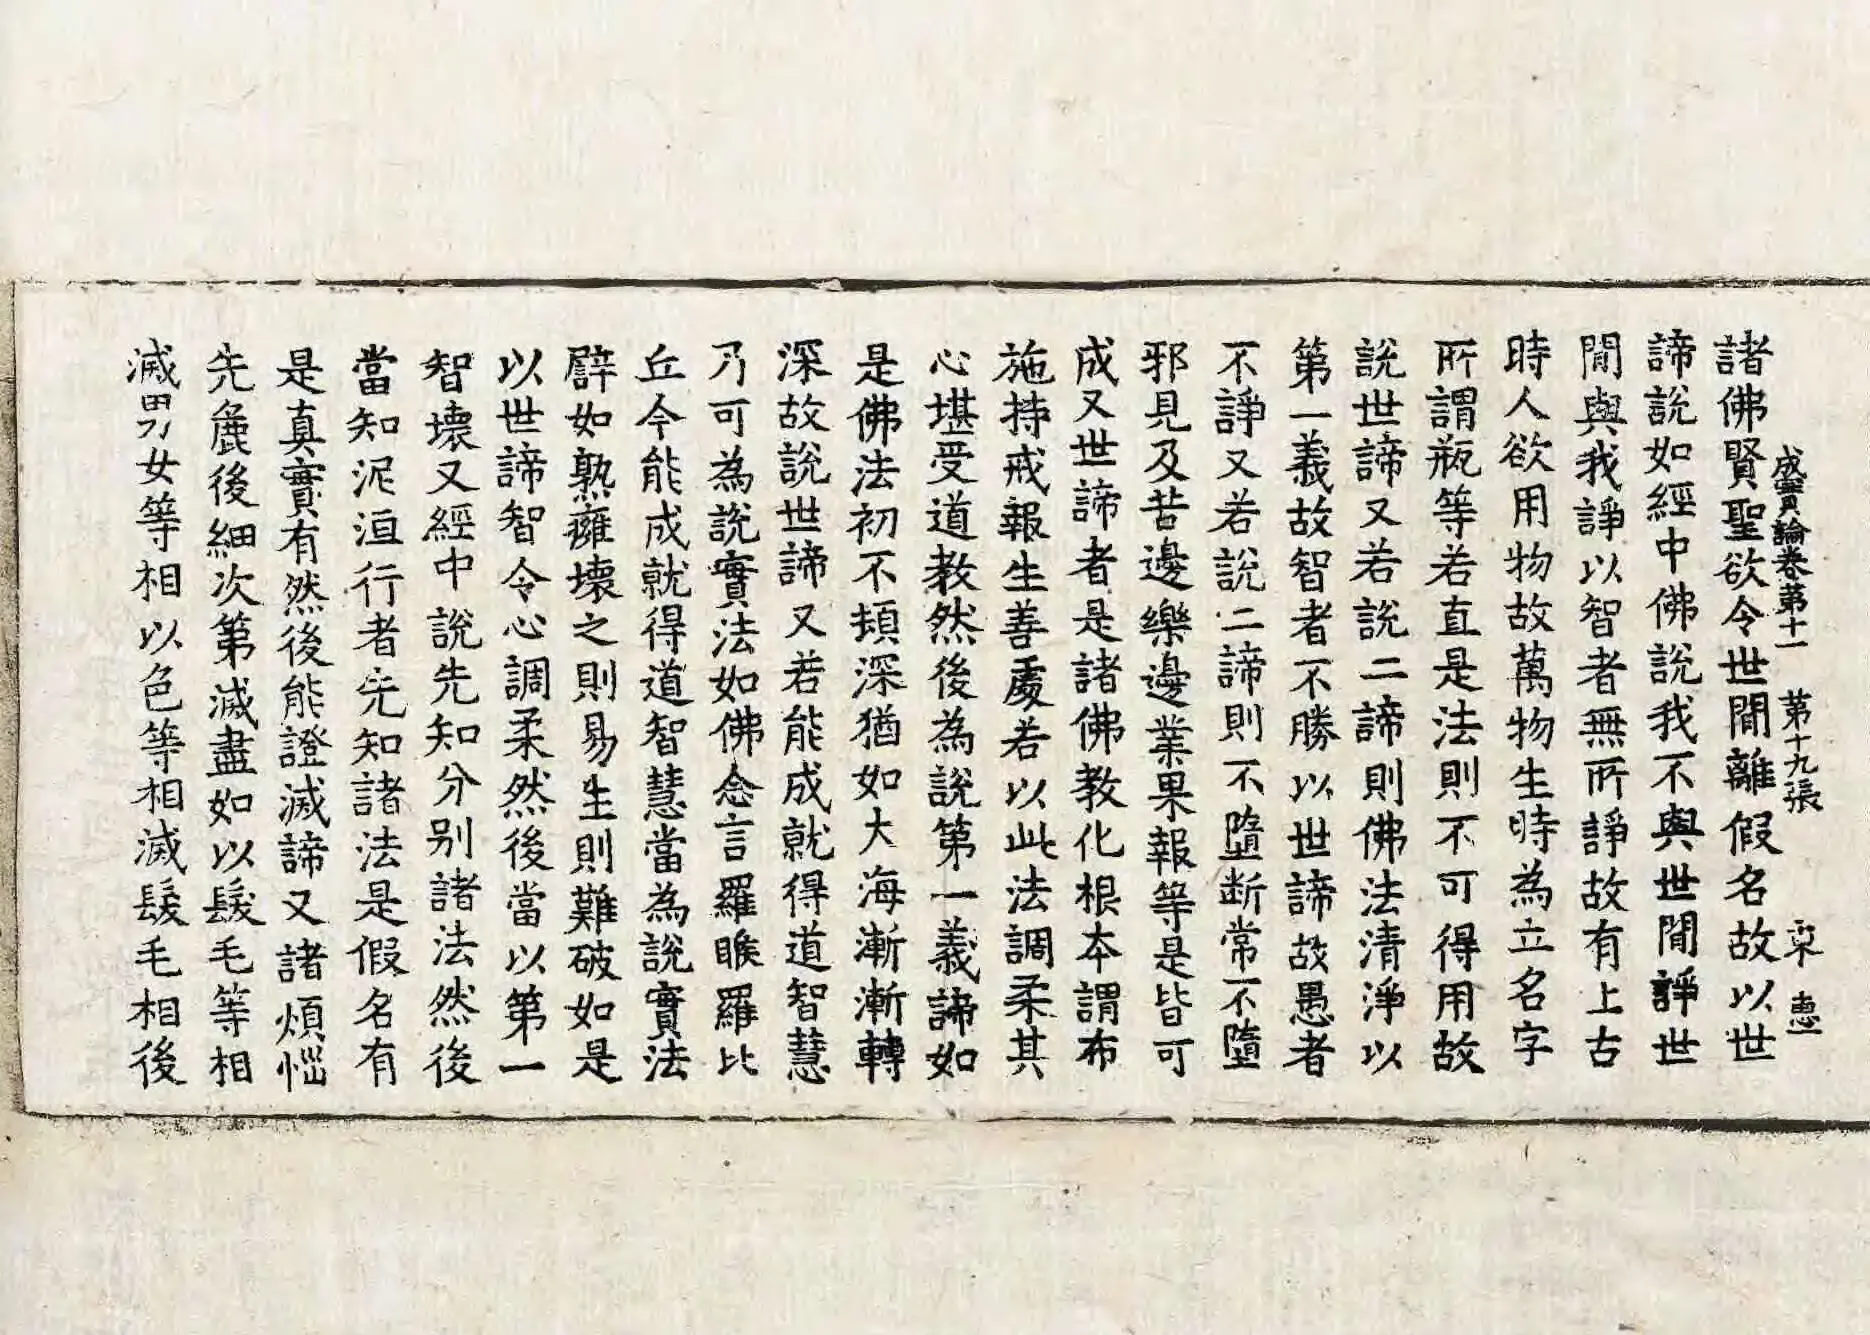 成實論卷第十一　第十九張　惠
諸佛賢聖欲令世間離假名故以世
諦說如經中佛說我不與世間諍世
間與我諍以智者無所諍故有上古
時人欲用物故萬物生時為立名字
所謂瓶等若直是法則不可得用故
說世諦又若說二諦則佛法清淨以
第一義故智者不勝以世諦故愚者
不諍又若說二諦則不墮断常不墮
邪見及苦邊樂邊業果報等是皆可
成又世諦者是諸佛教化根本謂布
施持戒報生善處若以此法調柔其
心堪受道教然後為說第一義諦如
是佛法初不頓深猶如大海漸漸轉
深故說世諦又若能成就得道智慧
乃可為說實法如佛念言羅睺羅比
丘今能成就得道智慧當為說實法
譬如熟癰壞之則易生則難破如是
以世諦智令心調柔然後當以第一
智壞又經中說先知分別諸法然後
當知泥洹行者先知諸法是假名有
是真實有然後能證滅諦又諸煩惱
先麁後細次第滅盡如以髮毛等相
滅男女等相以色等相滅髮毛相後